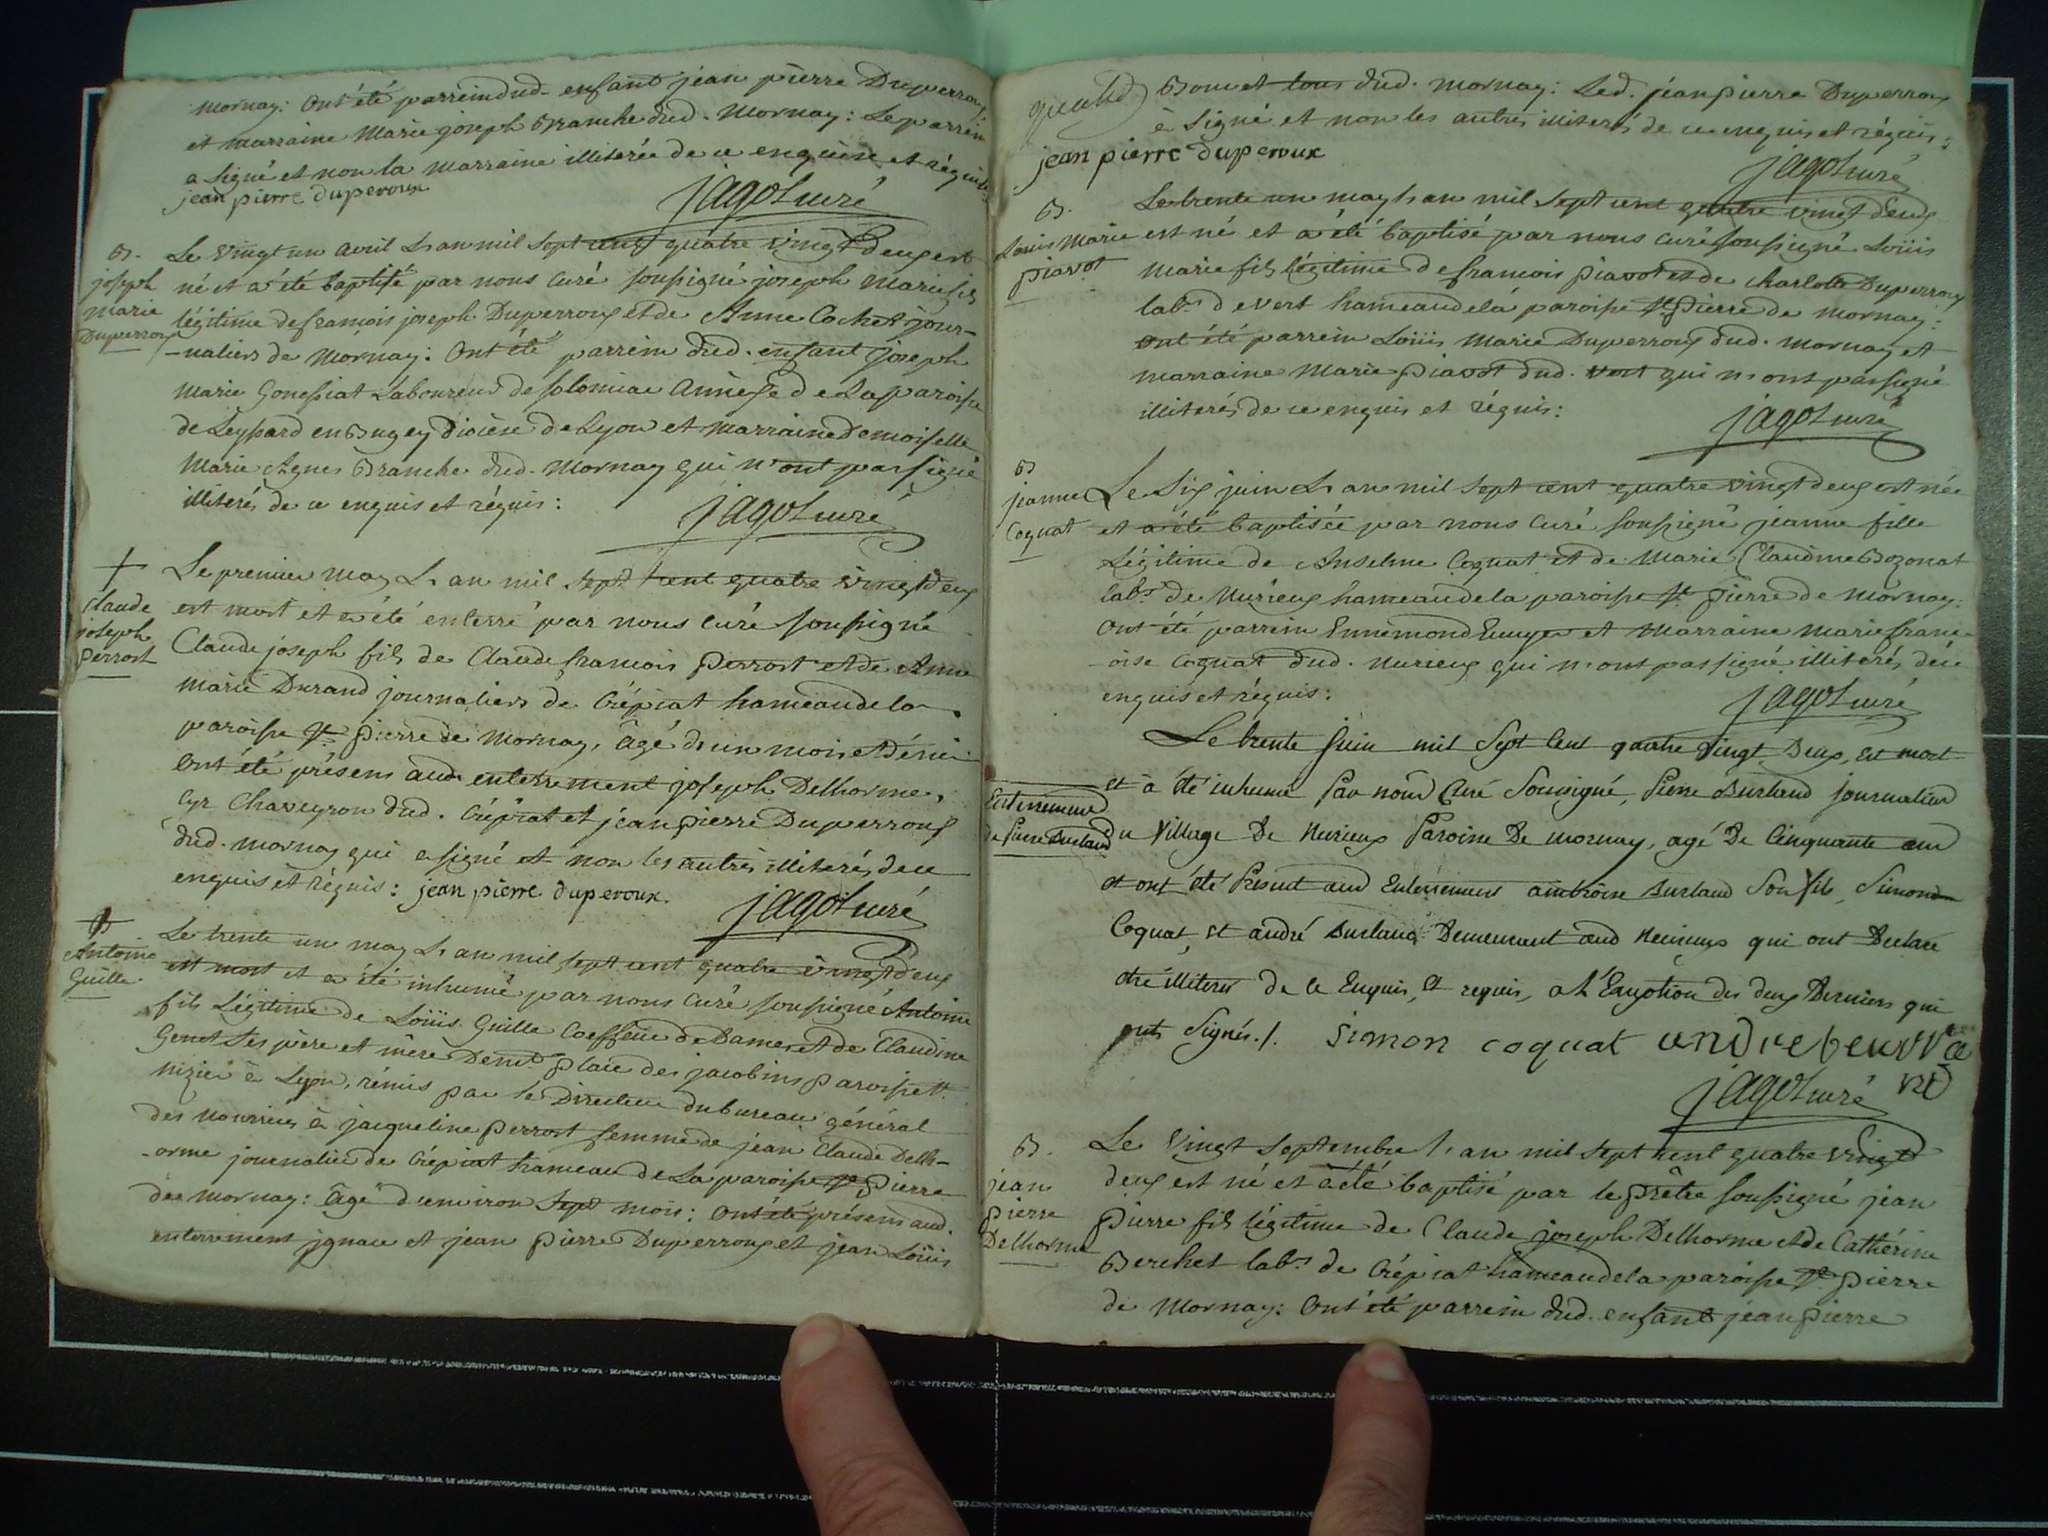 mornay: Ont été parrein dud. enfant jean pierre Duperroux
et marraine Marie joseph Branche dud. Mornay: Le parrein
a signé et non la marraine illiterée de ce enquise et réquise
jean pierre duperoux
jagot curé
B.
joseph
marie
Duperroux
Le vingt un avril L'an mil sept cent quatre vingt deux est
né et a été baptisé par nous curé soussigné joseph Marie fils
légitime de francois joseph Duperroux et de Anne Cochet jour-
-naliers de Mornay: Ont été parrein dud. enfant joseph
marie Gonessiat Laboureur de solomiac annèxe de La paroisse
de Leyssard en Bugey diocèse de Lyon et marraine Demoiselle
Marie Agnes Branche dud. Mornay qui n'ont pas signé
illiterés de ce enquis et réquis:
jagot curé
Claude
joseph
perrost
Le premier may L'an mil sept cent quatre vingt deux
est mort et a été enterré par nous curé soussigné
Claude joseph fils de Claude francois perrost et de Anne
marie Durand journaliers de Crépiat hameau de la
paroisse st. pierre de Mornay, âgé d'un mois et démi
Ont été présens aud. enterrement joseph Delhorme,
Cyr Chaveyron dud. Crépiat et jean pierre Duperroux
dud. mornay qui a signé et non les autrès illiterés de ce
enquis et réquis: jean pierre duperoux.
jagot curé
Antoine
Guille
Le trente un may L'an mil sept cent quatre vingt deux
est mort et a été inhumé par nous curé soussigné Antoine
fils Légitime de Loüis Guille Coeffeur de Dames et de Claudine
Genet ses père et mère Demt. place des jacobins paroisse st.
nizier à Lyon, rémis par le Directeur du bureau général
des nourrices à jacqueline perrost femme de jean Claude Delh-
-orme journalier de Crépiat hameau de La paroisse st. pierre
de Mornay: âgé d'environ sept mois: Ont été présens aud.
enterrement jgnace et jean pierre Duperroux et jean Loüis
Bouvet tous dud. mornay: Led. jean pierre Duperroux
à signé et non les autres illiterés de ce enquis et réquis:
jean pierre duperoux
jagot curé
B.
Louis Marie
piavot
Le trente un may L'an mil sept cent quatre vingt deux
est né et a été baptisé par nous curé soussigné Loüis
Marie fils légitime de francois piavot et de charlotte Duperroux
labrs. de Vert hameau de la paroisse st. pierre de Mornay:
ont été parrein Loüis Marie Duperroux dud. mornay et
marraine Marie piavot dud. Vert qui n'ont pas signé
illiterés de ce enquis et réquis:
jagot curé
B
jeanne
Coquat
Le six juin L'an mil sept cent quatre vingt deux est née
et a été baptisée par nous curé soussigné jeanne fille
Légitime de Anselme Coquat et de Marie Claudine Bozonat
labrs. de Nurieux hameau de la paroisse st. pierre de Mornay:
Ont été parrein Ennemond et Marraine Marie franc-
-oise Coquat dud. Nurieux qui n'ont pas signé illiterés de ce
enquis et réquis:
jagot curé
Enterrement
de Pierre Burtaud
Le trente Juin mil Sept Cent quatre vingt Deux, est mort
et à été inhumé Par nous Curé Sousigné, Pierre Burtaud journalier
du Village De Nurieux Paroisse De mornay, agé De Cinquante ans
et ont été Présent aud Enterrement ambroise Burtaud Son fils, Simond
Coquat, et andré Burtaud Demeurant aud Neirieux qui ont Declaré
etre illiteres de Ce Enquis, et requis, a L'Exception des deux Derniers qui
ont Signés./. simon coquat
jagot curé
B.
jean
pierre
Delhorme
Le vingt septembre l'an mil sept cent quatre vingt
deux est né et a été baptisé par le prêtre soussigné jean
pierre fils légitime de Claude joseph Delhorme et de Cathérine
Berchet labrs. de Crépiat hameau de la paroisse st. pierre
de Mornay: Ont été parrein dud. enfant jean pierre